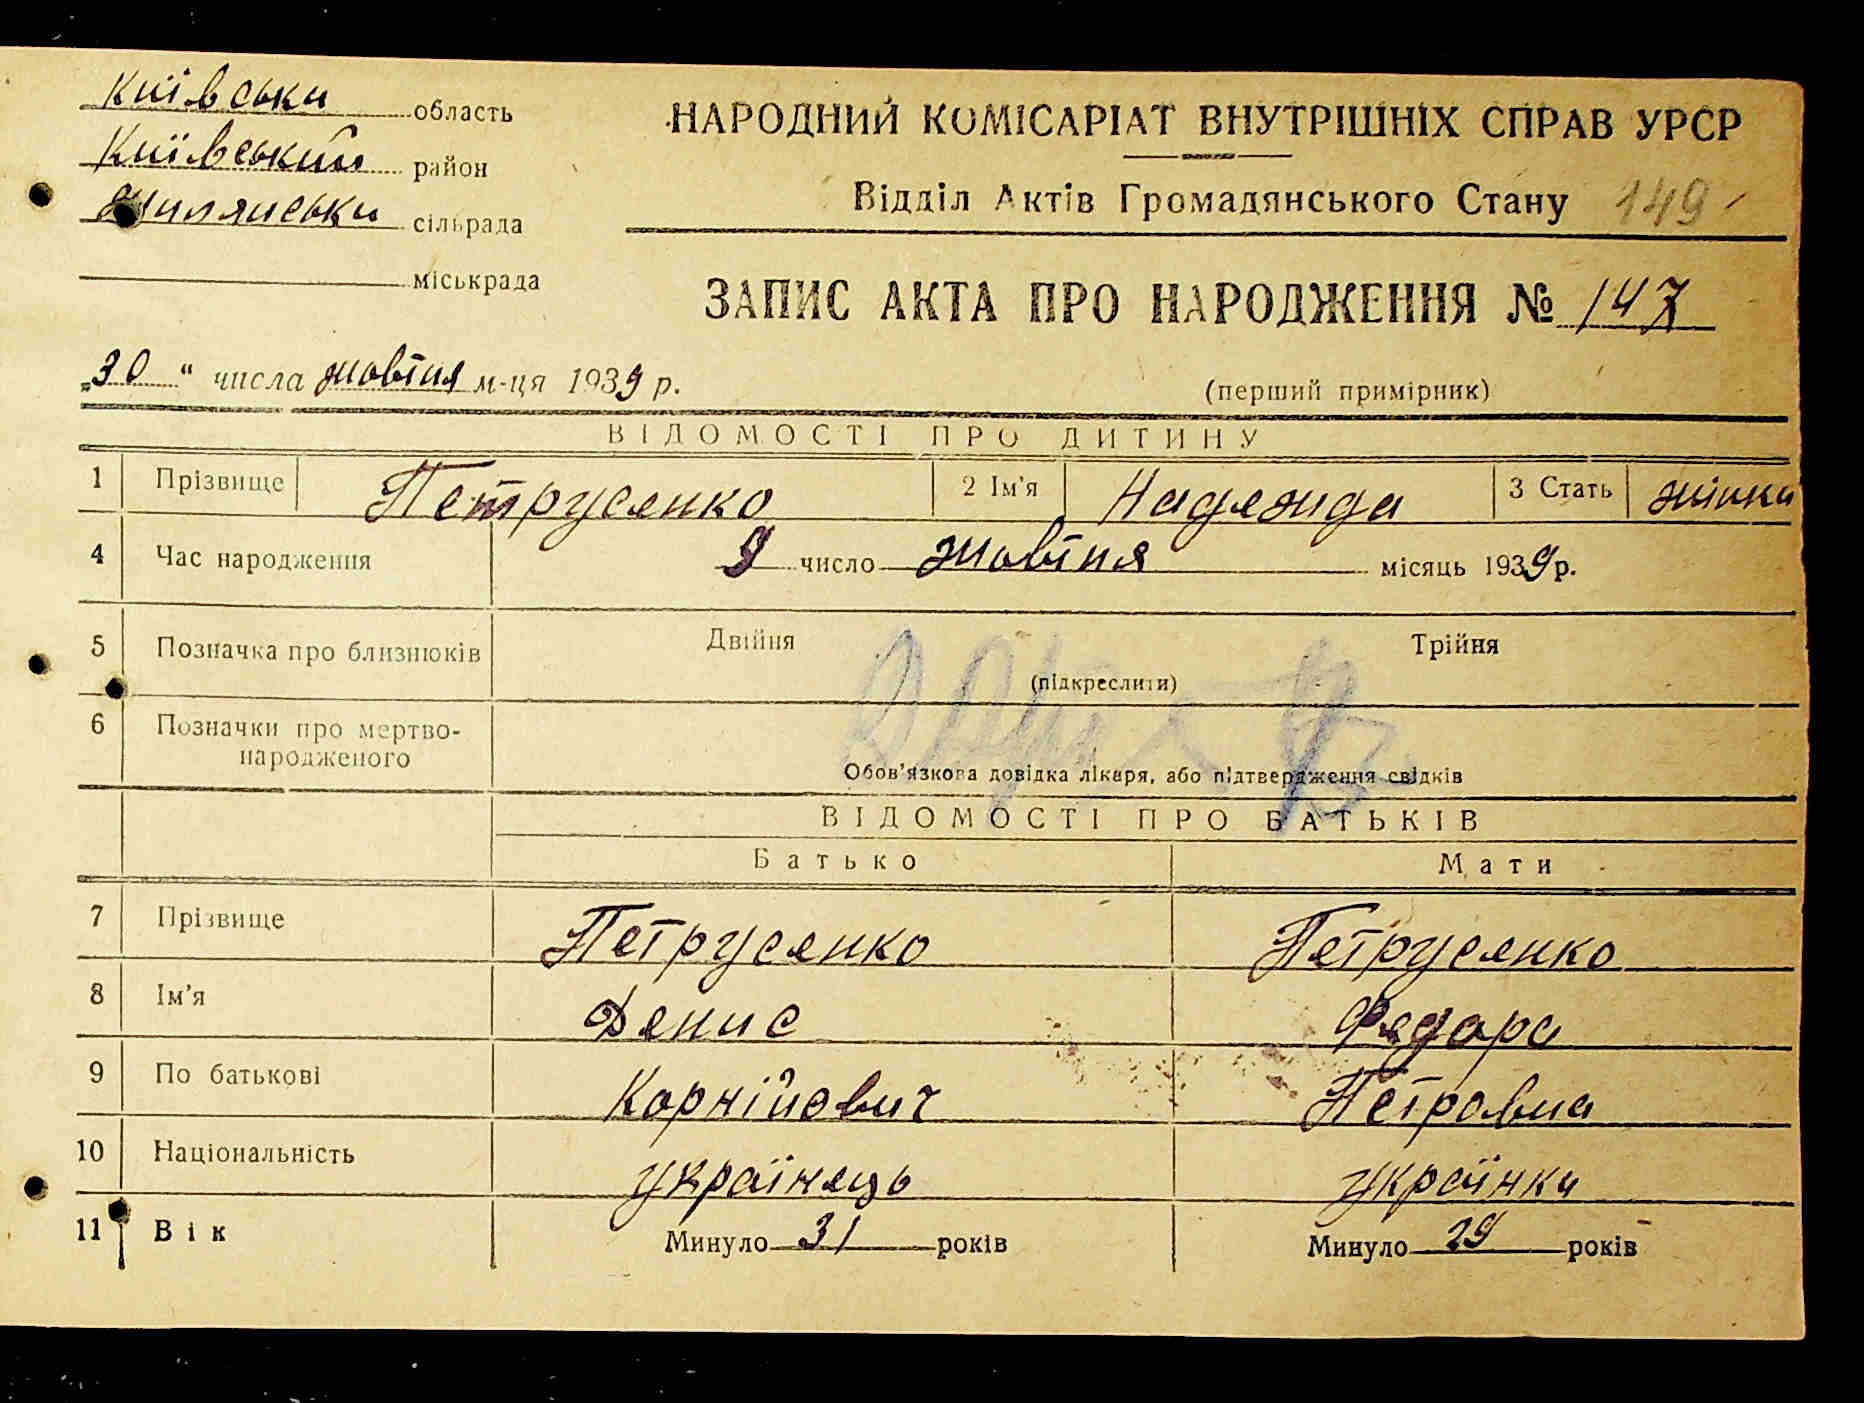 Київська область
Київський район
Жилянська сільрада
міськрада
НАРОДНИЙ КОМІСАРІАТ ВНУТРІШНІХ СПРАВ УРСР
Відділ Актів Громадянського Стану 149
ЗАПИС АКТА ПРО НАРОДЖЕННЯ № 147
„30" числа жовтня м-ця 1939 р.
(перший примірник)
ВІДОМОСТІ ПРО ДИТИНУ
1 Прізвище Петрусенко 2 Ім'я Надежда 3 Стать жінка
4 Час народження 9 число жовтня місяць 1939 р.
5 Позначка про близнюків Двійня Трійня
(підкреслити)
6 Позначки про мертво-
народженого
Обов'язкова довідка лікаря, або підтвердження свідків
ВІДОМОСТІ ПРО БАТЬКІВ
Батько Мати
7 Прізвище Петрусенко Петрусенко
8 Ім'я Денис Федора
9 По батькові Корнійович Петровна
10 Національність українець українка
11 Вік Минуло 31 років Минуло 29 років